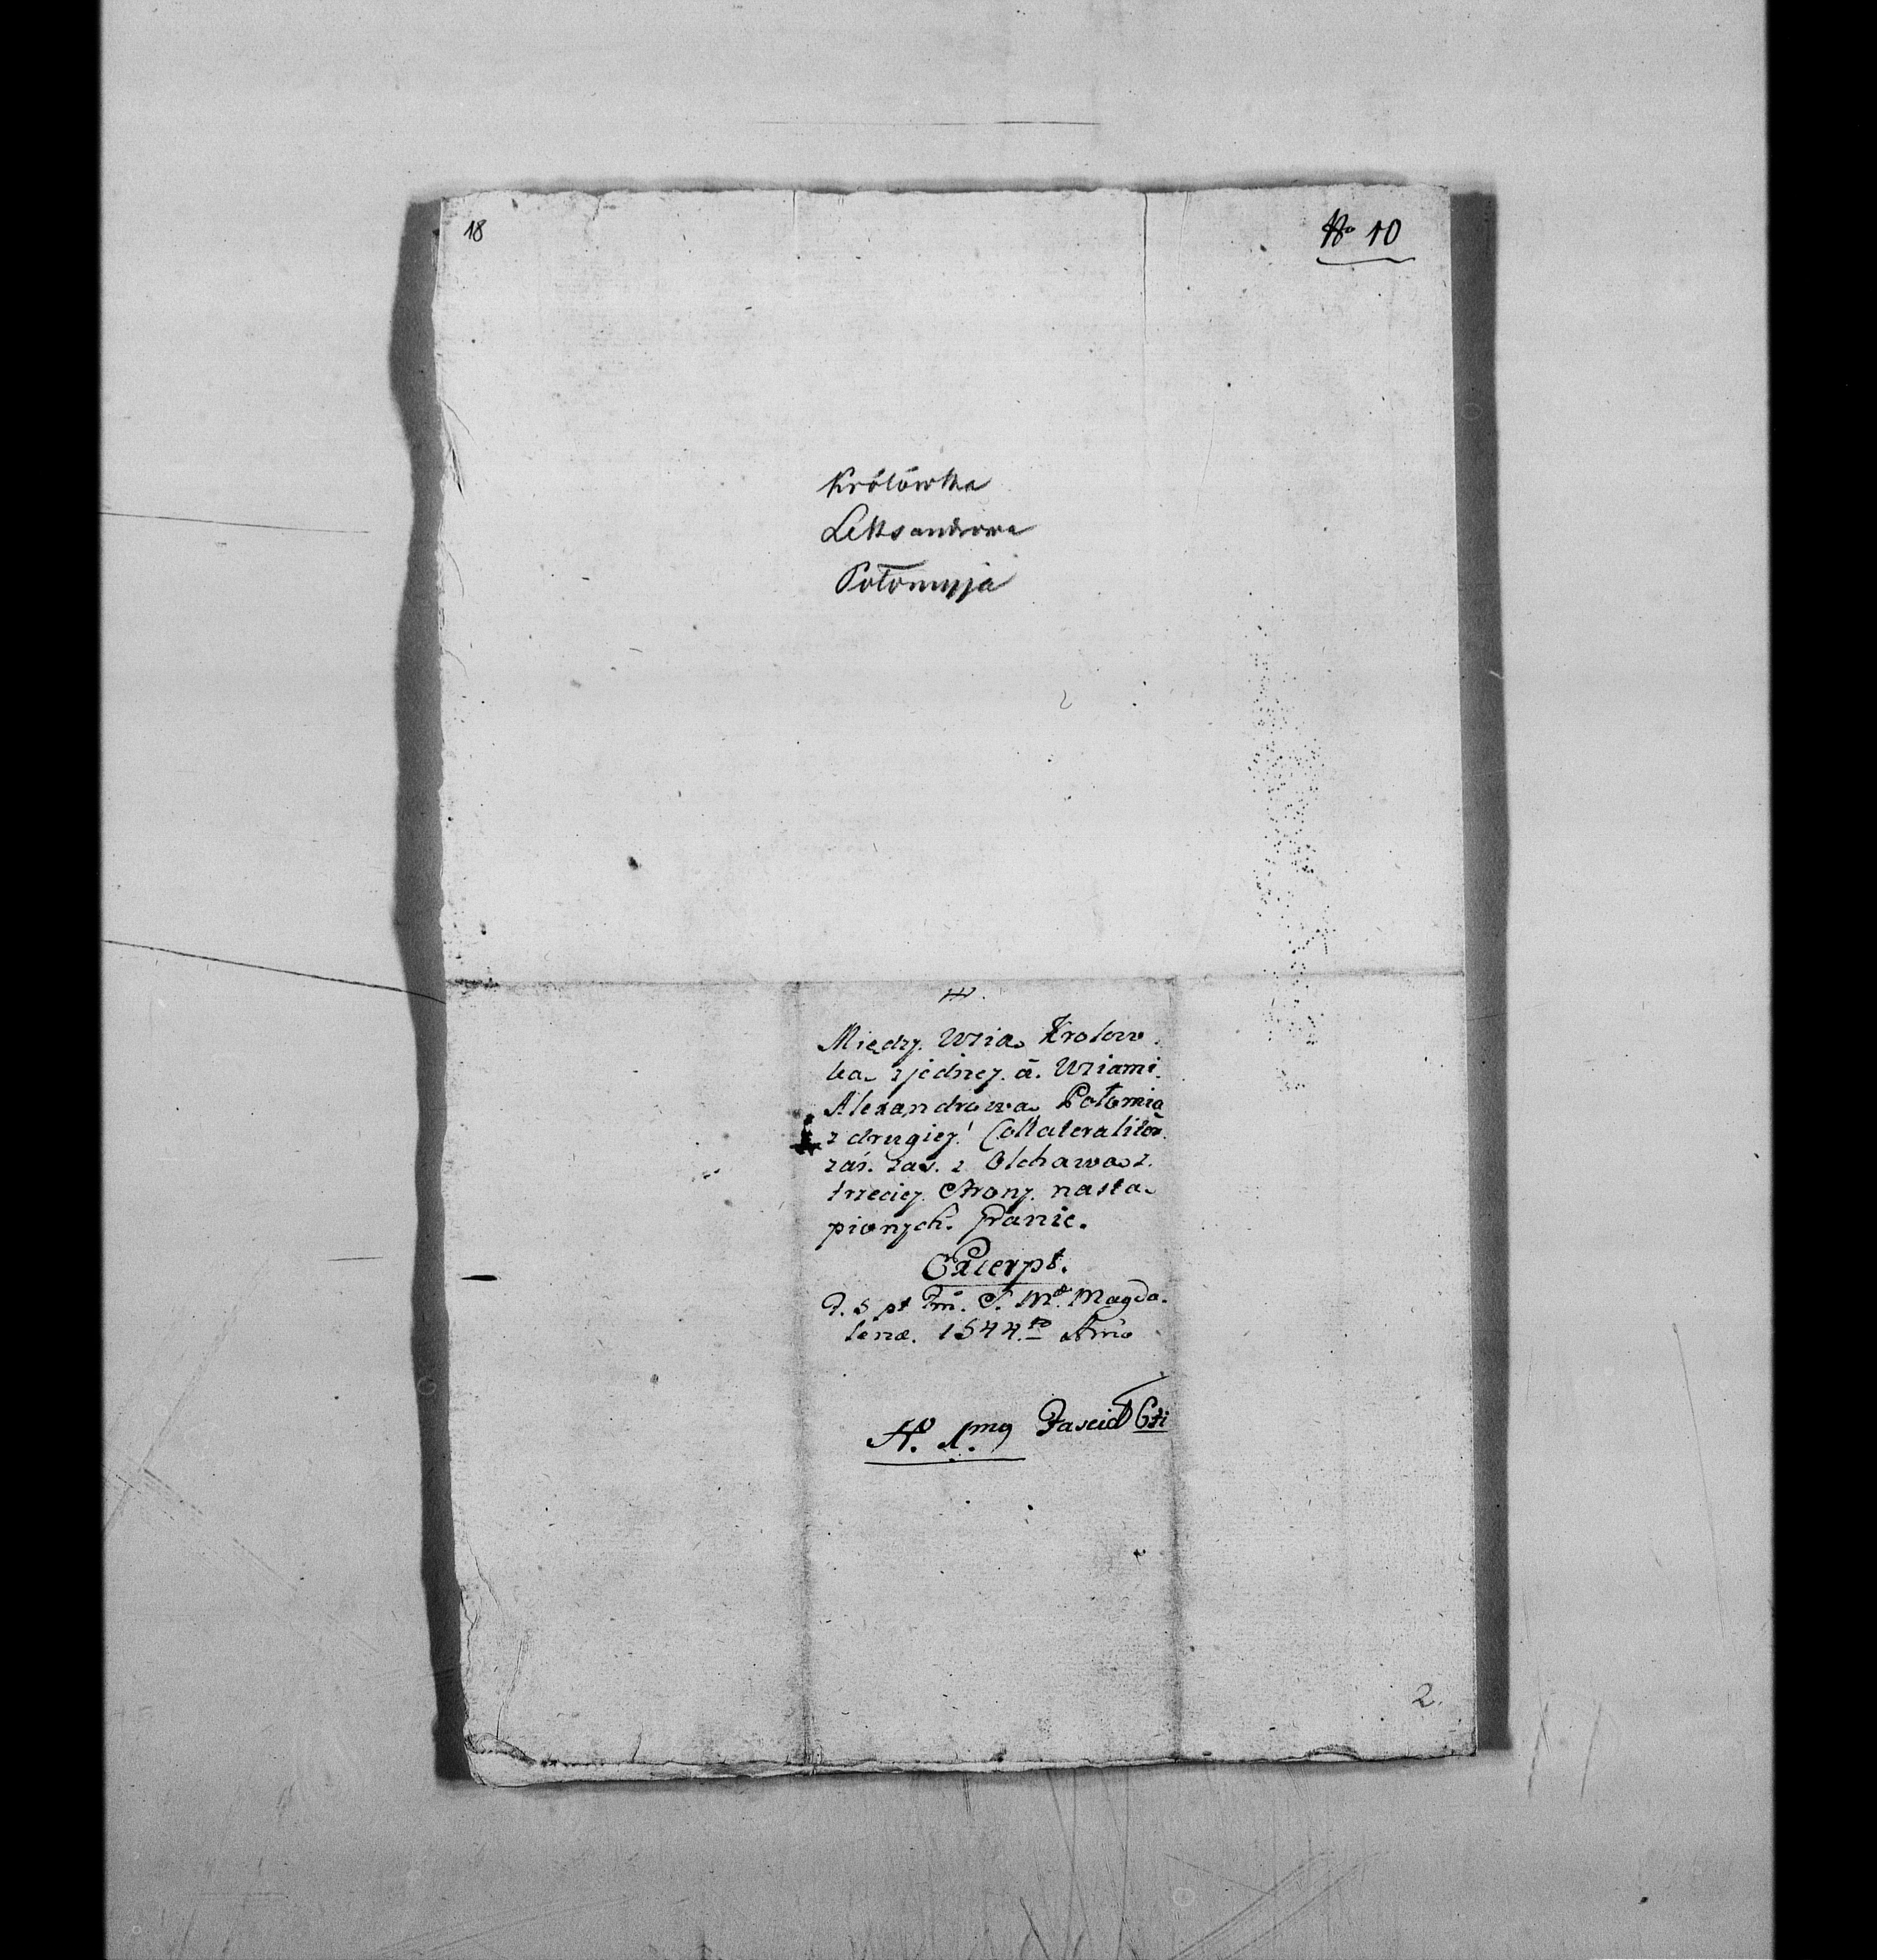 18
No 10
Królówka
Leksandrowa
Połomyja
Między Wsią Krolow
ką z jedney. á. Wsiami.
Alexandrowa, Połomią
z drugiey! Collateraliter
zás. zas. z Olchawą z.
trzeciey. Strony. nastą
pionych. Granic.
Excerpt.
F. 5 pt Fm. S. Mæ Magda.
lenæ. 1544.to Anno
No. 1mg Fascic 6ti
2.